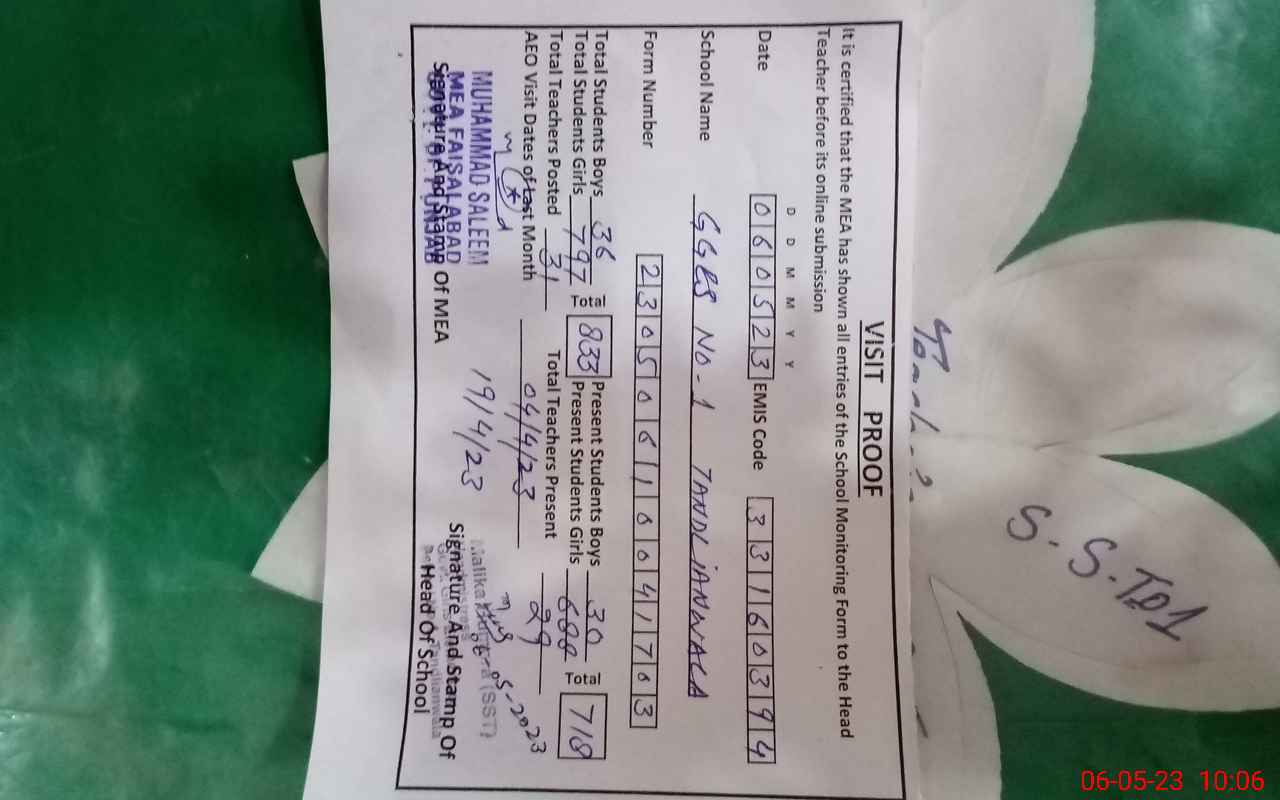 VISIT PROOF
It is certified that the MEA has shown all entries of the School Monitoring Form to the Head
Teacher before its online submission
D D M M Y Y
Date 060523 EMIS Code 33160394
School Name GGES NO-1 TANDLIANWALA
Form Number 23050610041703
Total Students Boys 36 Total 833 Present Students Boys 30 Total 718
Total Students Girls 797 Present Students Girls 688
Total Teachers Posted 31 Total Teachers Present 29
AEO Visit Dates of Last Month 04/4/23
19/4/23
MUHAMMAD SALEEM
MEA FAISALABAD
Signature And Stamp Of MEA
Malika (SST)
05-2023
Tandlianwala
Signature And Stamp Of
Head Of School
S.S.T01
06-05-23 10:06